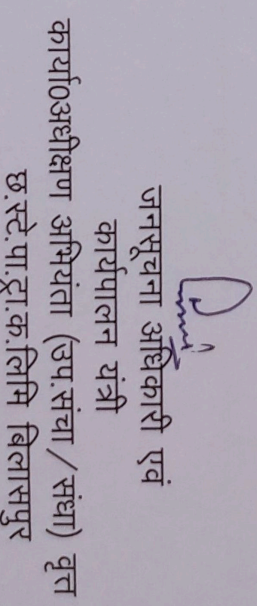 जनसूचना अधिकारी एवं
कार्यपालन यंत्री
कार्या0अधीक्षण अभियंता (उप.संचा/संधा) वृत्त
छ.स्टे.पा.ट्रा.क.लिमि बिलासपुर